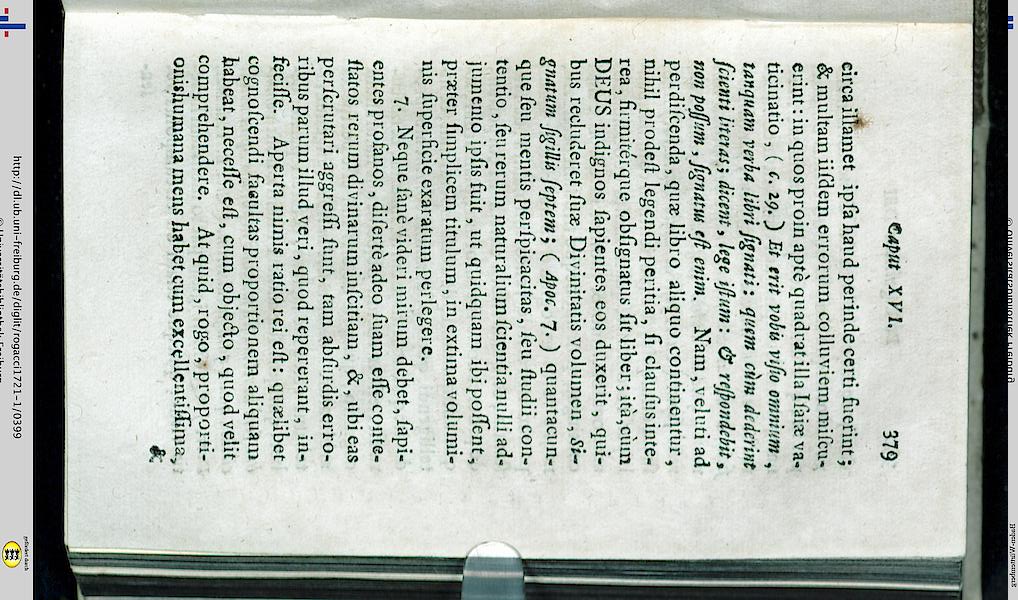 Caput XVI. 379
circa illamet ipſa haud perinde certi fuerint;
& multam iiſdem errorum colluviem miſcu-
erint: in quos proin aptè quadrat illa Iſaiæ va-
ticinatio, ( c. 29. ) Et erit vobis viſio omnium,
tanquam verba libri ſignati: quem cùm dederint
ſcienti literas; dicent, lege iſtum: & reſpondebit,
non poſſum, ſignatus eſt enim. Nam, veluti ad
perdiſcenda, quæ libro aliquo continentur,
nihil prodeſt legendi peritia, ſi clauſus inte-
rea, firmitérque obſignatus ſit liber; ità, cùm
DEUS indignos ſapientes eos duxerit, qui-
bus recluderet ſuæ Divinitatis volumen, Si-
gnatum ſigillis ſeptem; ( Apoc. 7. ) quantacun-
que ſeu mentis perſpicacitas, ſeu ſtudii con-
tentio, ſeu rerum naturalium ſcientia nulli ad-
jumento ipſis fuit, ut quidquam ibi poſſent,
præter ſimplicem titulum, in extima volumi-
nis ſuperficie exaratum perlegere.
7. Neque ſanè videri mirum debet, ſapi-
entes profanos, diſertè adeo ſuam eſſe conte-
ſtatos rerum divinarum inſcitiam, &, ubi eas
perſcrutari aggreſſi ſunt, tam abſurdis erro-
ribus parum illud veri, quod repererant, in-
feciſſe. Aperta nimis ratio rei eſt: quælibet
cognoſcendi facultas proportionem aliquam
habeat, neceſſe eſt, cum objecto, quod velit
comprehendere. At quid, rogo proporti-
onis humana mens habet cum excellentiſſima,
&
http://dl.ub.uni-freiburg.de/diglit/rogacci1721-1/0399
© Universitätsbibliothek Freiburg
gefördert durch